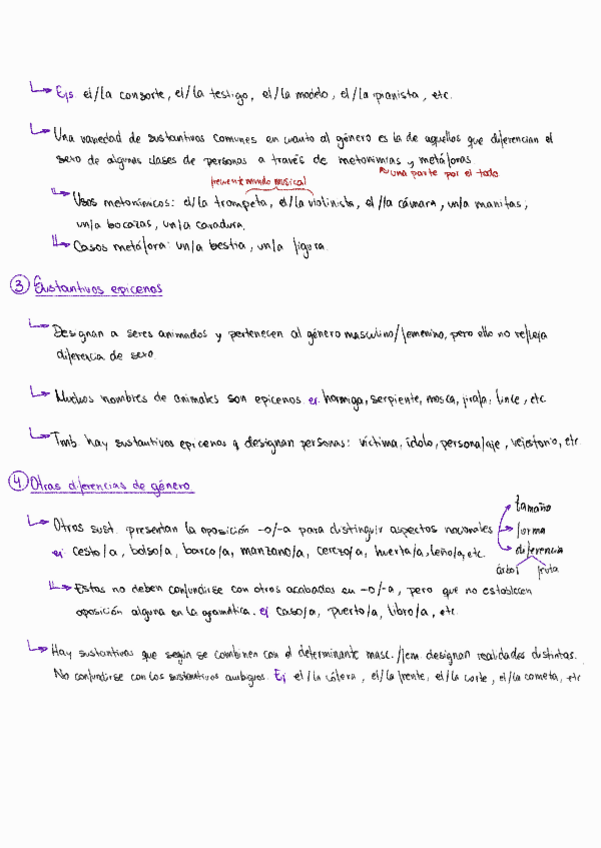 Ejs. el/la consorte, el/la testigo, el/la modelo, el/la pianista, etc.
Una variedad de sustantivos comunes en cuanto al género es la de aquellos que diferencian el
sexo de algunas clases de personas a través de metonimias y metáforas
una parte por el todo
mundo musical
Usos metonímicos: el/la trompeta, el/la violinista, el/la cámara, un/a manitas,
un/a bocazas, un/a caradura.
Casos metáfora: un/a bestia, un/a figura.
3 Sustantivos epicenos
Designan a seres animados y pertenecen al género masculino/femenino, pero ello no refleja
diferencia de sexo.
Muchos nombres de animales son epicenos. ej. hormiga, serpiente, mosca, jirafa, lince, etc.
Tmb. hay sustantivos epicenos q designan personas: víctima, ídolo, personaje, vejestorio, etc
4 Otras diferencias de género
tamaño
Otros sust. presentan la oposición -o/-a para distinguir aspectos nocionales
forma
ej: cesto/a, bolso/a, barco/a, manzano/a, cerezo/a, huerta/a, leño/a, etc.
diferencia
árbol fruta
Estas no deben confundirse con otros acabados en -o/-a, pero que no establecen
oposición alguna en la gramática. ej caso/a, puerto/a, libro/a, etc.
Hay sustantivos que según se combinen con el determinante masc./fem. designan realidades distintas.
No confundirse con los sustantivos ambiguos. Ej el/la cólera, el/la frente, el/la corte, el/la cometa, etc